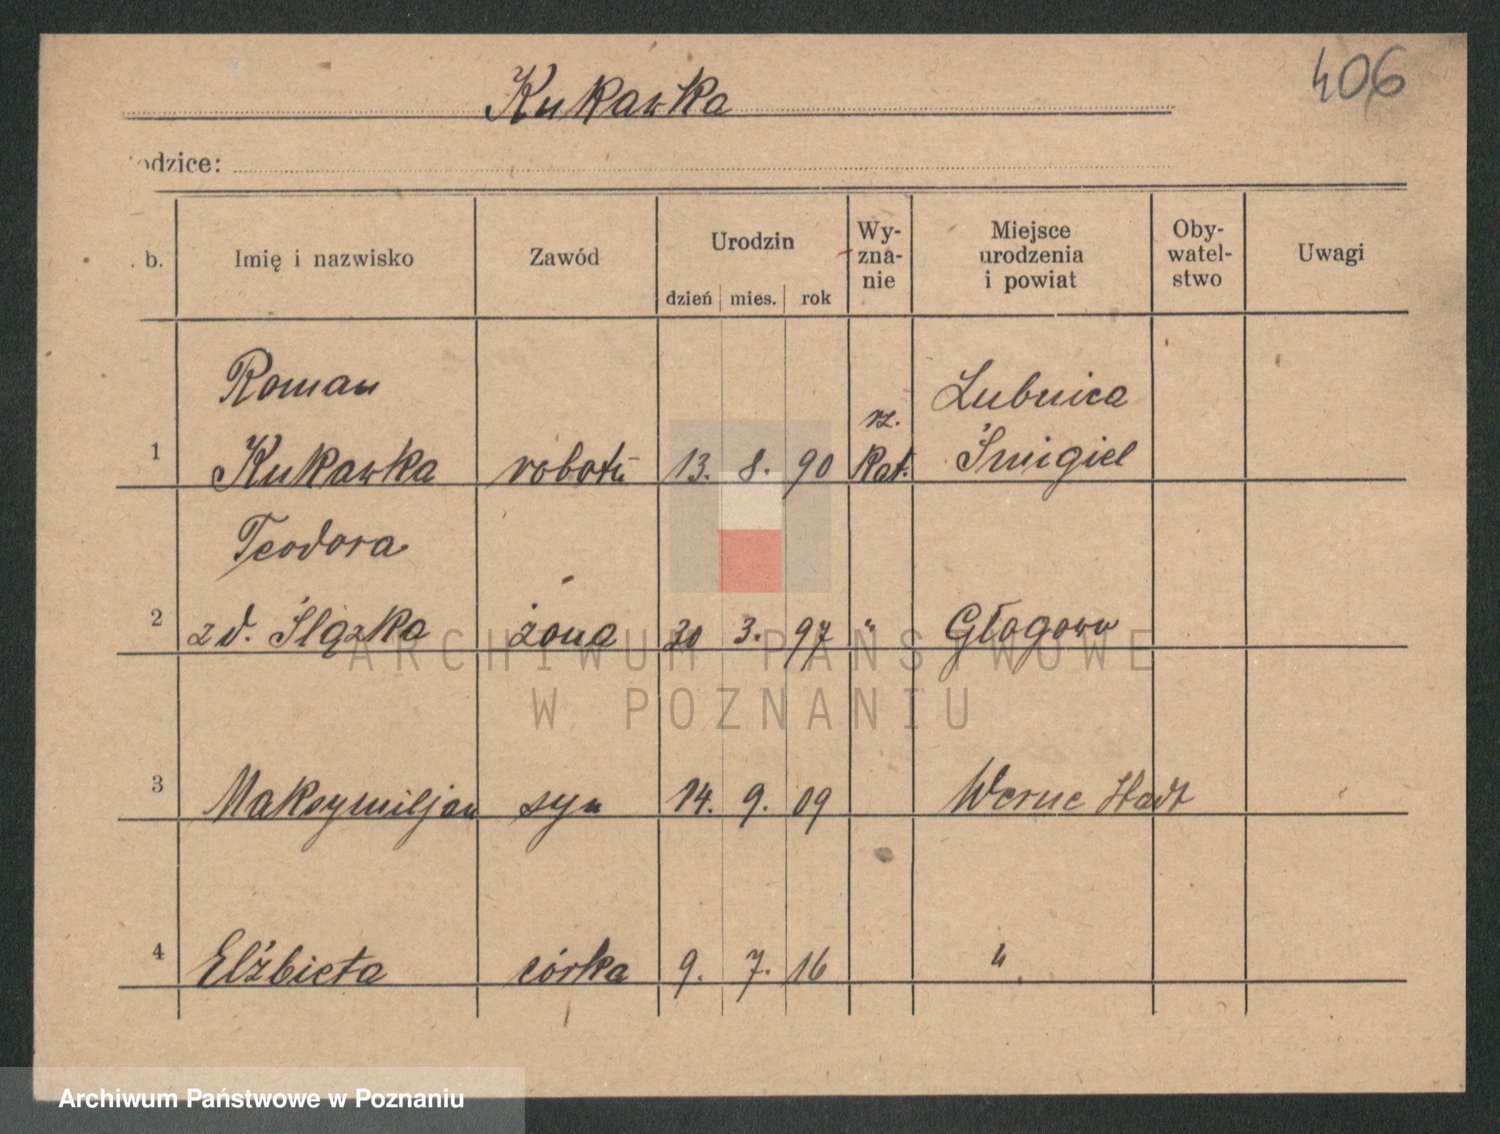 406
Kukawka
odzice:
b. Imię i nazwisko Zawód Urodzin Wy- Miejsce Oby- Uwagi
zna- urodzenia watel-
nie i powiat stwo
dzień mies. rok
Roman Łubnica
rz.
1 Kukawka robotn 13. 8. 90 Kat. Śmigiel
Teodora
2 z d. Ślązka żona 30 3. 97 " Głogowo
ARCHIWUM PAŃSTWOWE
W POZNANIU
3 Maksymiljan syn 14. 9. 09 Werne Stadt
4 Elżbieta córka 9. 7. 16 "
Archiwum Państwowe w Poznaniu